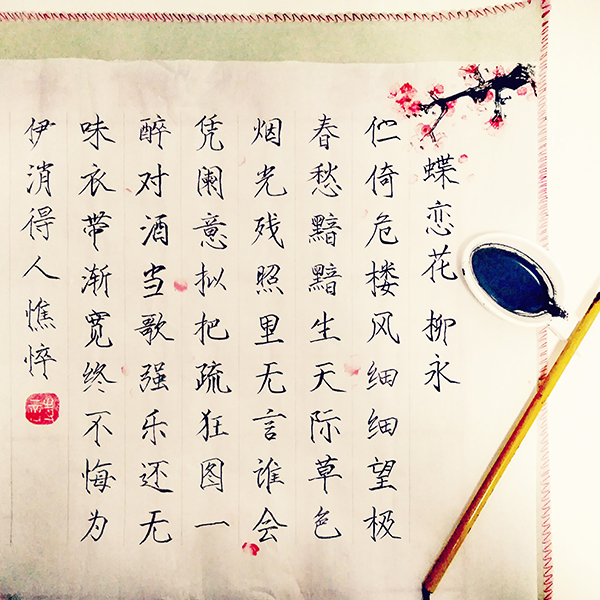 蝶恋花 柳永
伫倚危楼风细细望极
春愁黯黯生天际草色
烟光残照里无言谁会
凭阑意拟把疏狂图一
醉对酒当歌强乐还无
味衣带渐宽终不悔为
伊消得人憔悴